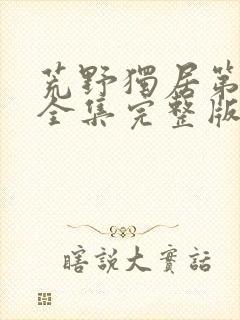 荒野獨居第
全集完整版
瞎說大實話